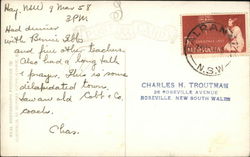 Hay, NSW 9 Mar 58
3 P.M.
Had dinner
with Bernie
and five other teachers.
Also had a long talk
& prayer. This is some
dilapidated town.
Saw an old Cobb & Co.
coach.
Chas.
N.S.W.
CHARLES H. TROUTMAN
26 ROSEVILLE AVENUE
ROSEVILLE, NEW SOUTH WALES